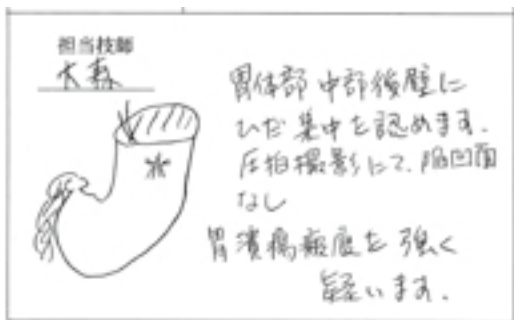 担当技師
大森
胃体部 中部後壁に
ひだ集中を認めます.
圧迫撮影にて、陥凹面
なし
胃潰瘍瘢痕を強く
疑います.